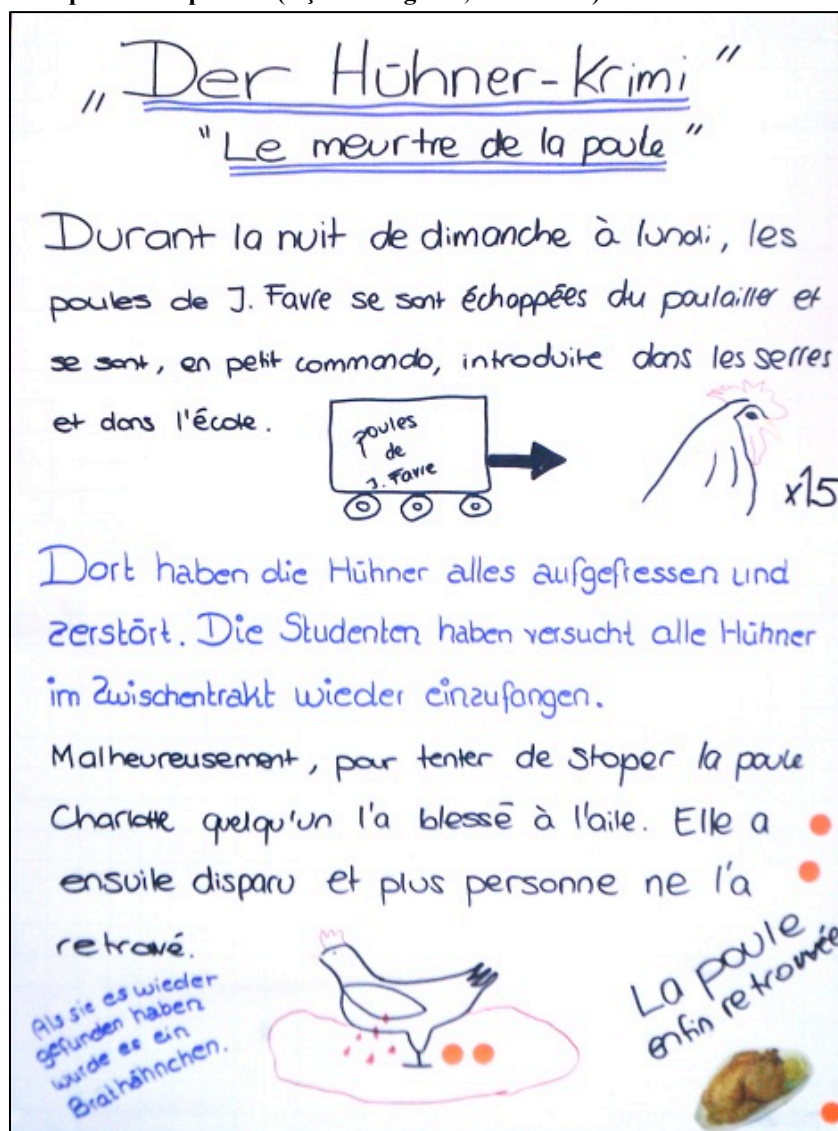 „Der Hühner-Krimi"
"Le meurtre de la poule"
Durant la nuit de dimanche à lundi, les
poules de J. Favre se sont échappées du poulailler et
se sont, en petit commando, introduite dans les serres
et dans l'école.
poules
de
J. Favre
x15
Dort haben die Hühner alles aufgefressen und
zerstört. Die Studenten haben versucht alle Hühner
im Zwischentrakt wieder einzufangen.
Malheureusement, pour tenter de stoper la poule
Charlotte quelqu'un l'a blessé à l'aile. Elle a
ensuite disparu et plus personne ne l'a
retrouvé.
Als sie es wieder
gefunden haben
wurde es ein
Brathähnchen.
La poule
enfin retrouvée